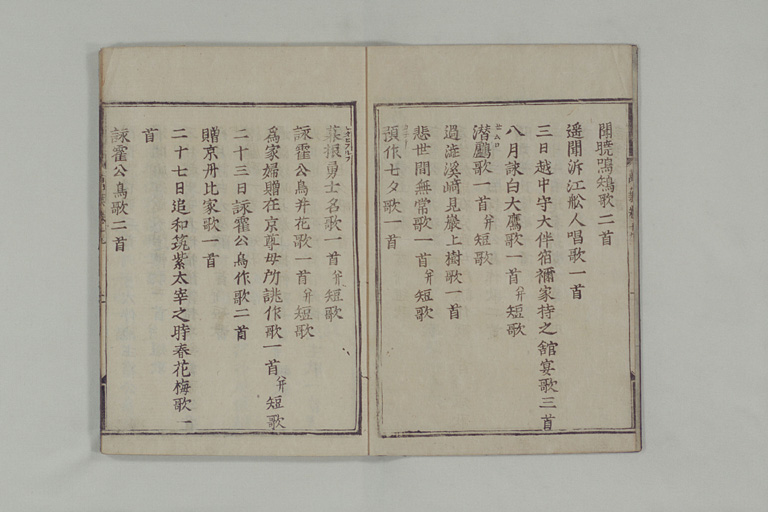 聞暁鳴鴙歌二首
遥聞泝江舩人唱歌一首
三日越中守大伴宿禰家持之館宴歌三首
八月詠白大鷹歌一首并短歌
潜鸕歌一首并短歌
過澁溪﨑見巖上樹歌一首
悲世間無常歌一首并短歌
預作七夕歌一首
慕振勇士名歌一首并短歌
詠霍公鳥并花歌一首并短歌
為家婦贈在京尊母所誂作歌一首并短歌
二十三日詠霍公鳥作歌二首
贈京丹比家歌一首
二十七日追和筑紫太宰之時春花梅歌一
首
詠霍公鳥歌二首